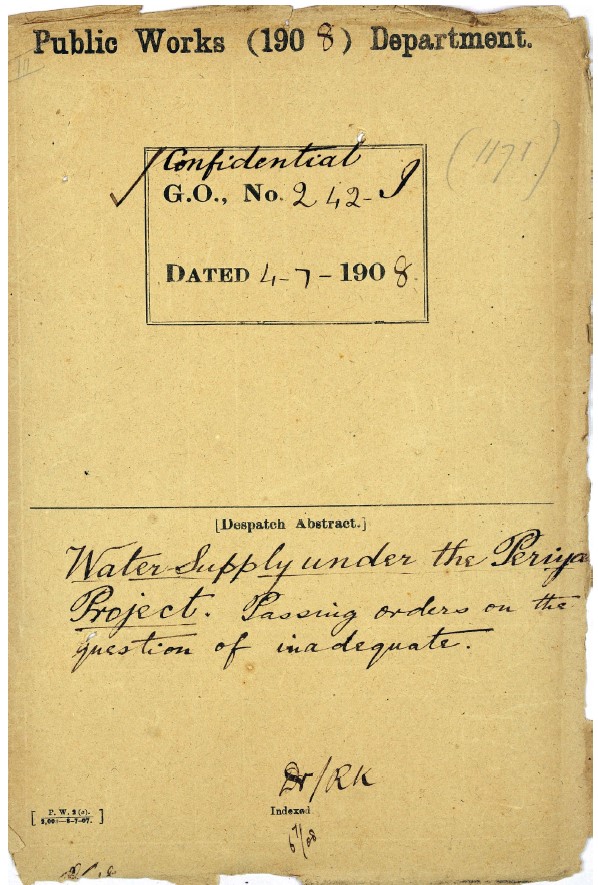 Public Works (1908) Department.
(1171)
Confidential
G.O., No. 242-I
DATED 4-7-1908
[Despatch Abstract.]
Water Supply under the Periya
Project. Passing orders on the
question of inadequate.
Dr/RK
Indexed
[P. W. 2 (c).-
8-7-07.]